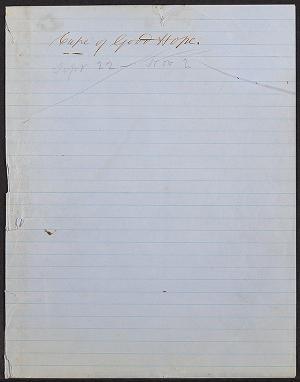 Cape of Good Hope.
Sept. 22 - Nov 2